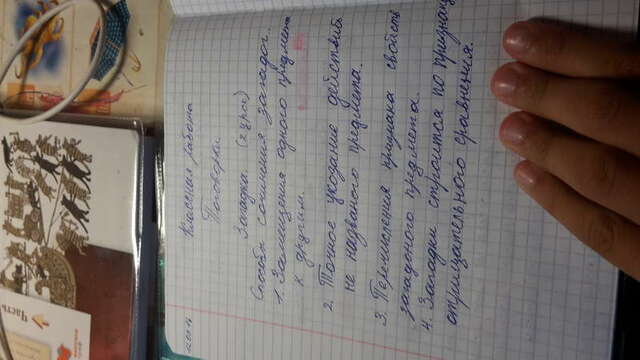 Часть
12.09.16
Классная работа
Поговорки
Загадка. (2 урок)
Способы сочинения загадок.
1. Замещения одного предмета
к другим.
2. Точное указание действий
не названого предмета.
3. Перечисления признака свойств
загадоного предмета.
4. Загадки строится по признаку
отрицательного сравнения.